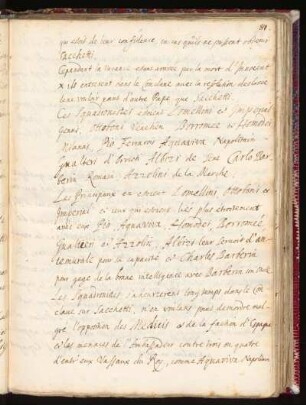 qu estoit de leur confidence, en cas quils ne pussent obtenir
Sacchetti.
Cependant la vacance estant arrivée par la mort d'Innocent
X ils entrerent dans le Conclave avec la resolution de
vouloir point d'autre Pape que Sacchetti.
Les Squadronistes estoient Lomellini et Imperiali
genois, Ottobon Venitien Borromée et Homodei
Milanois, Pio Ferrarois Aquaviva Napolitain
Gualtieri d'Orviete Albizi de Cesene Carlo Bar
berin Romain Azzolini de la Marche.
Les Principaux en estoient Lomellini, Ottobon et
Imperial et ceux qui estoient liés plus etroitement
avec eux Pio Aquaviva Homodei, Borromée
Gualtieri et Azzolin, Albizi leur servoit d'an
temurale pour sa capacité et Charles Barberin
pour gage de la bonne intelligence avec Barberin
Les Squadronistes demeurerent longtemps dans le Con
clave sur Sacchetti, n'en voulant pas demordre mal
gre l'opposition des Medicis et de la faction d'Espagne
et les menaces de l'Ambassadeur contre trois ou quatre
d'entr'eux Vassaux du Roy, comme Aquaviva Napolitain